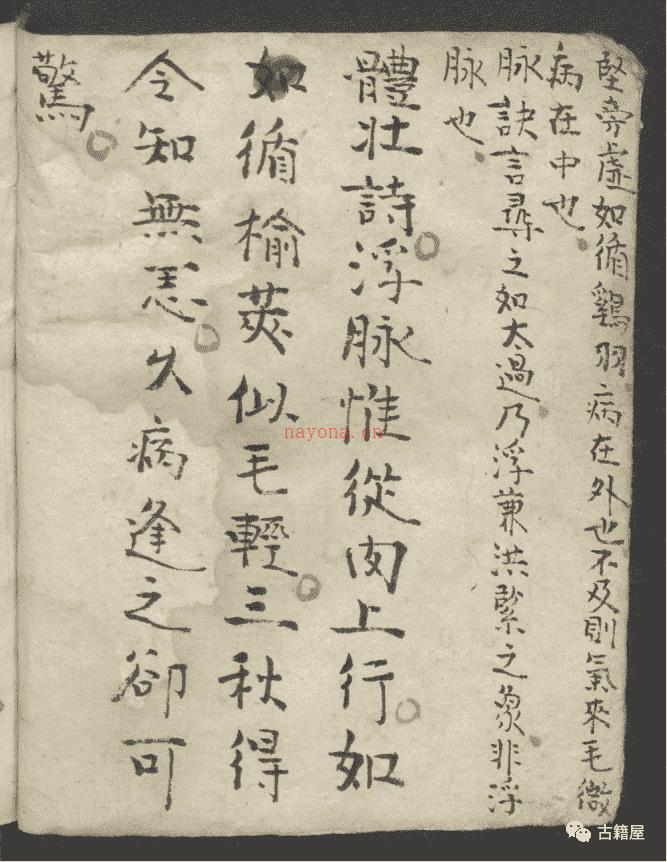 堅旁虛如循鷄羽病在外也不及則氣來毛微
病在中也
脉訣言尋之如太過乃浮兼洪緊之象非浮
脉也
體壯詩浮脉惟從肉上行如
如循榆莢似毛輕三秋得
令知無恙久病逢之卻可
驚
nayona.cn
古籍屋